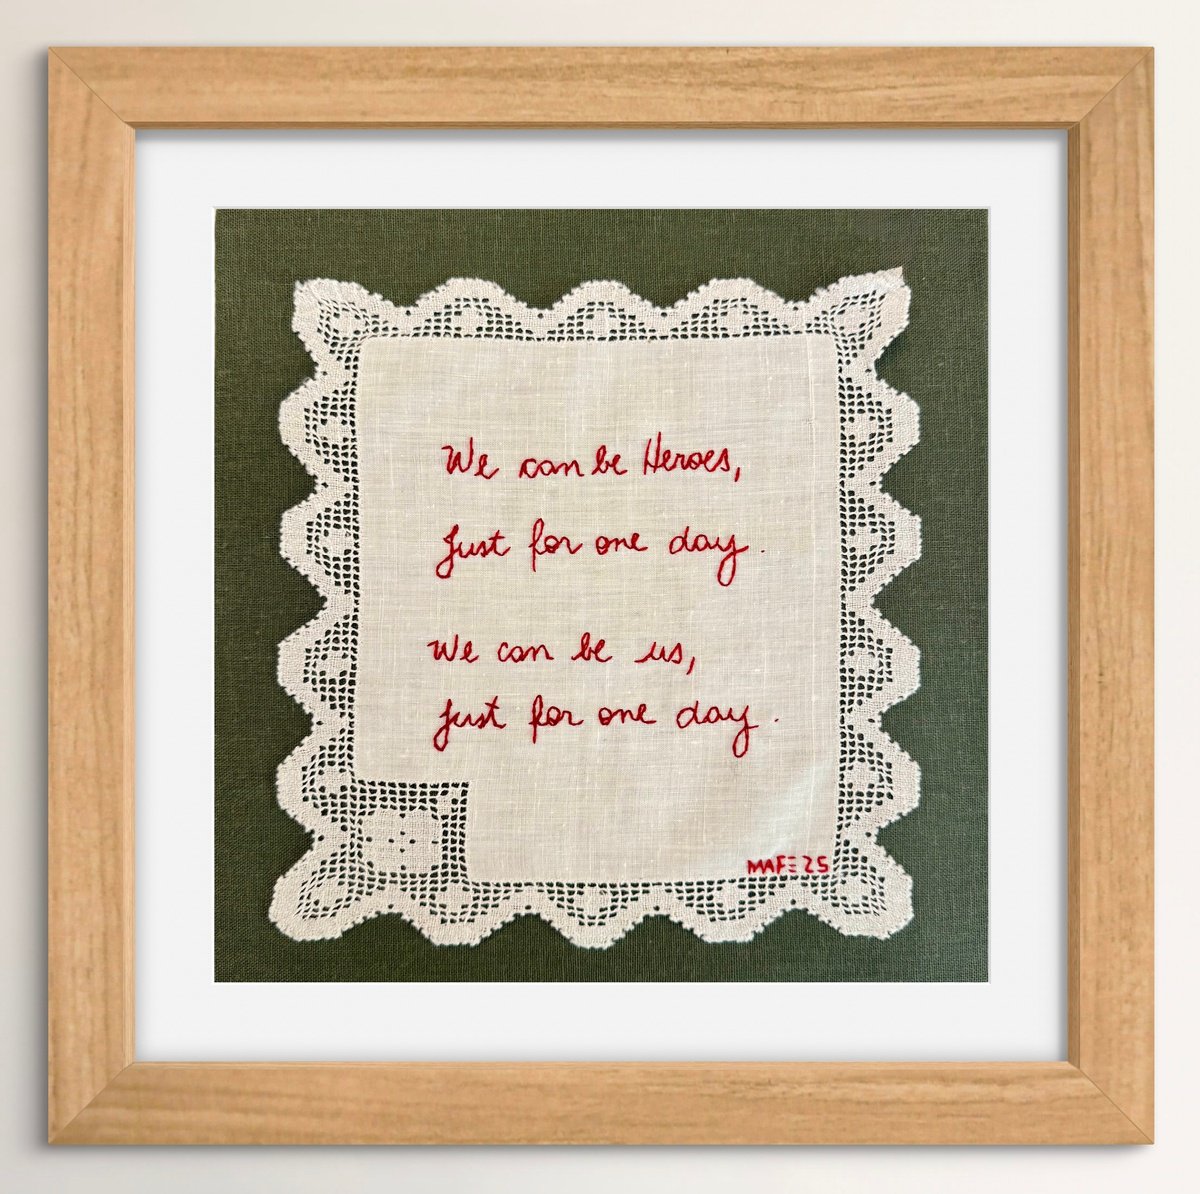 We can be Heroes,
Just for one day.
We can be us,
Just for one day.
MAFE 25